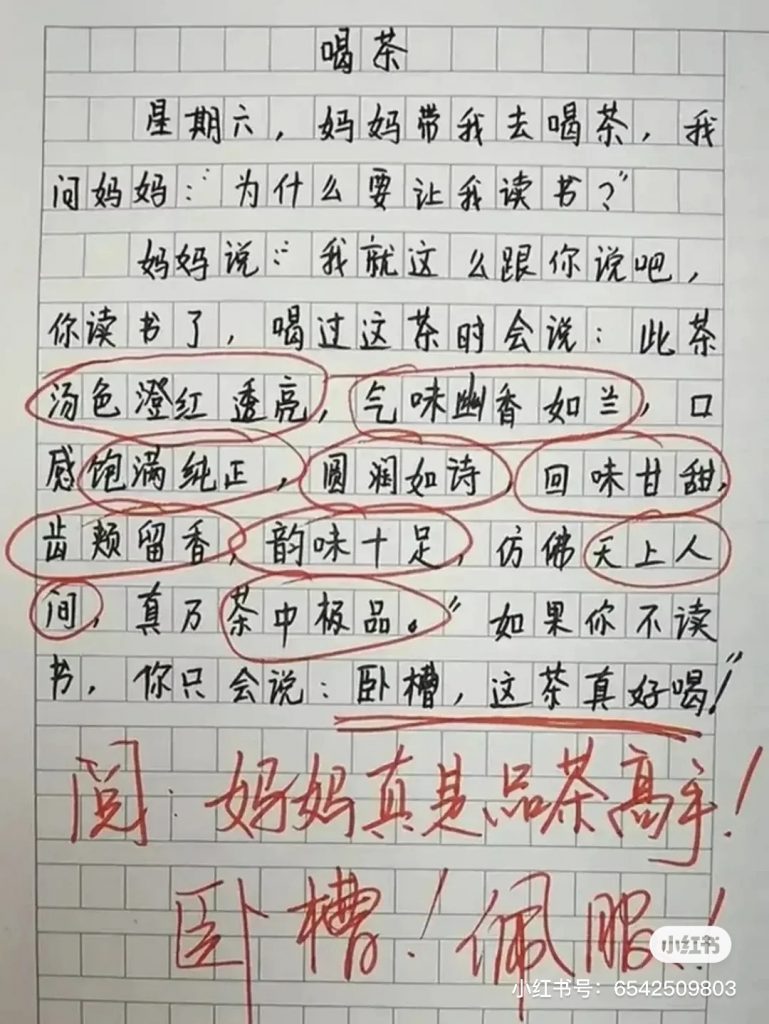 喝茶
星期六，妈妈带我去喝茶，我
问妈妈：“为什么要让我读书？”
妈妈说：“我就这么跟你说吧，
你读书了，喝过这茶时会说：此茶
汤色澄红透亮，气味幽香如兰，口
感饱满纯正，圆润如诗，回味甘甜，
齿颊留香，韵味十足，仿佛天上人
间，真乃茶中极品。”如果你不读
书，你只会说：卧槽，这茶真好喝！”
阅：妈妈真是品茶高手！
卧槽！佩服！
小红书
小红书号：6542509803